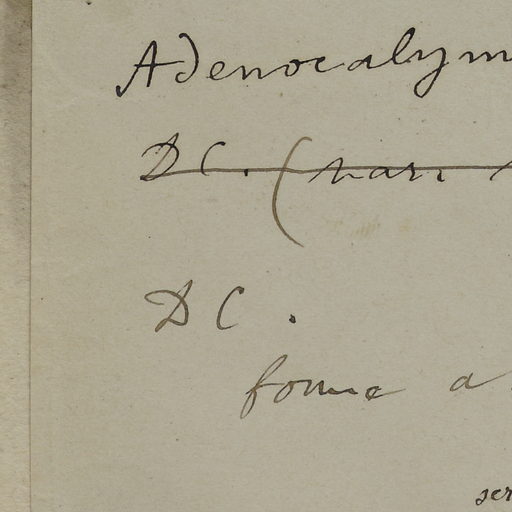 Adenocalym
DC. (vari
DC.
forme a
ser